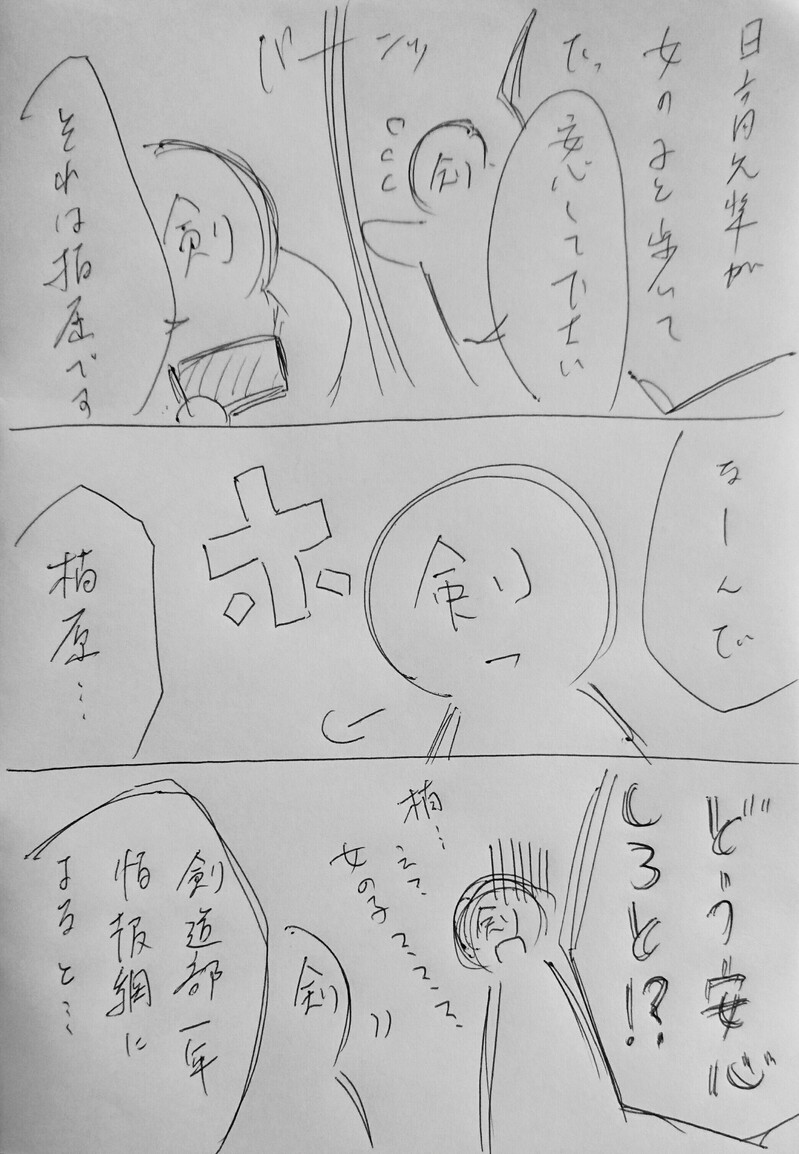 日高先輩が
女の子と歩いて
た
安心して下さい
剣
バーーンッ
剣
それは柏原です
なーんだ
剣
ホッ
柏原…
どう安心
しろと!?
剣
柏…
え、
女の子え、え、え、
剣
剣道部一年
情報網に
よると…